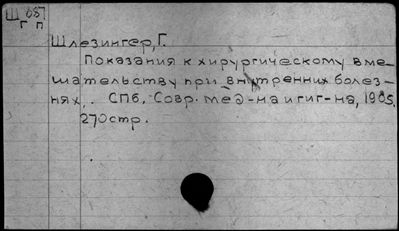 Ш 657
Г П
Шлезингер, Г.
Показания к хирургическому вме-
шательству при внутренних болез-
нях. СПб, Совр. мед-на и гиг-на, 1905.
270 стр.